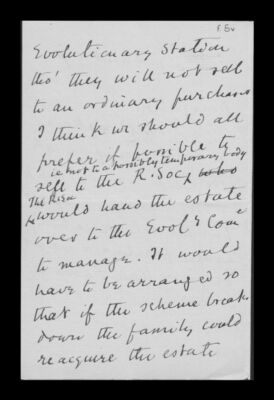 f. 5v
Evolutionary Station
tho' they will not sell
to an ordinary purchaser
I think we should all
prefer if possible to
i.e. not to a possibly temporary body
sell to the R. Soc, who
The R.S.
would hand the estate
over to the Evol. Com.
to manage. It would
have to be arranged so
that if the scheme breaks
down the family could
reacquire the estate